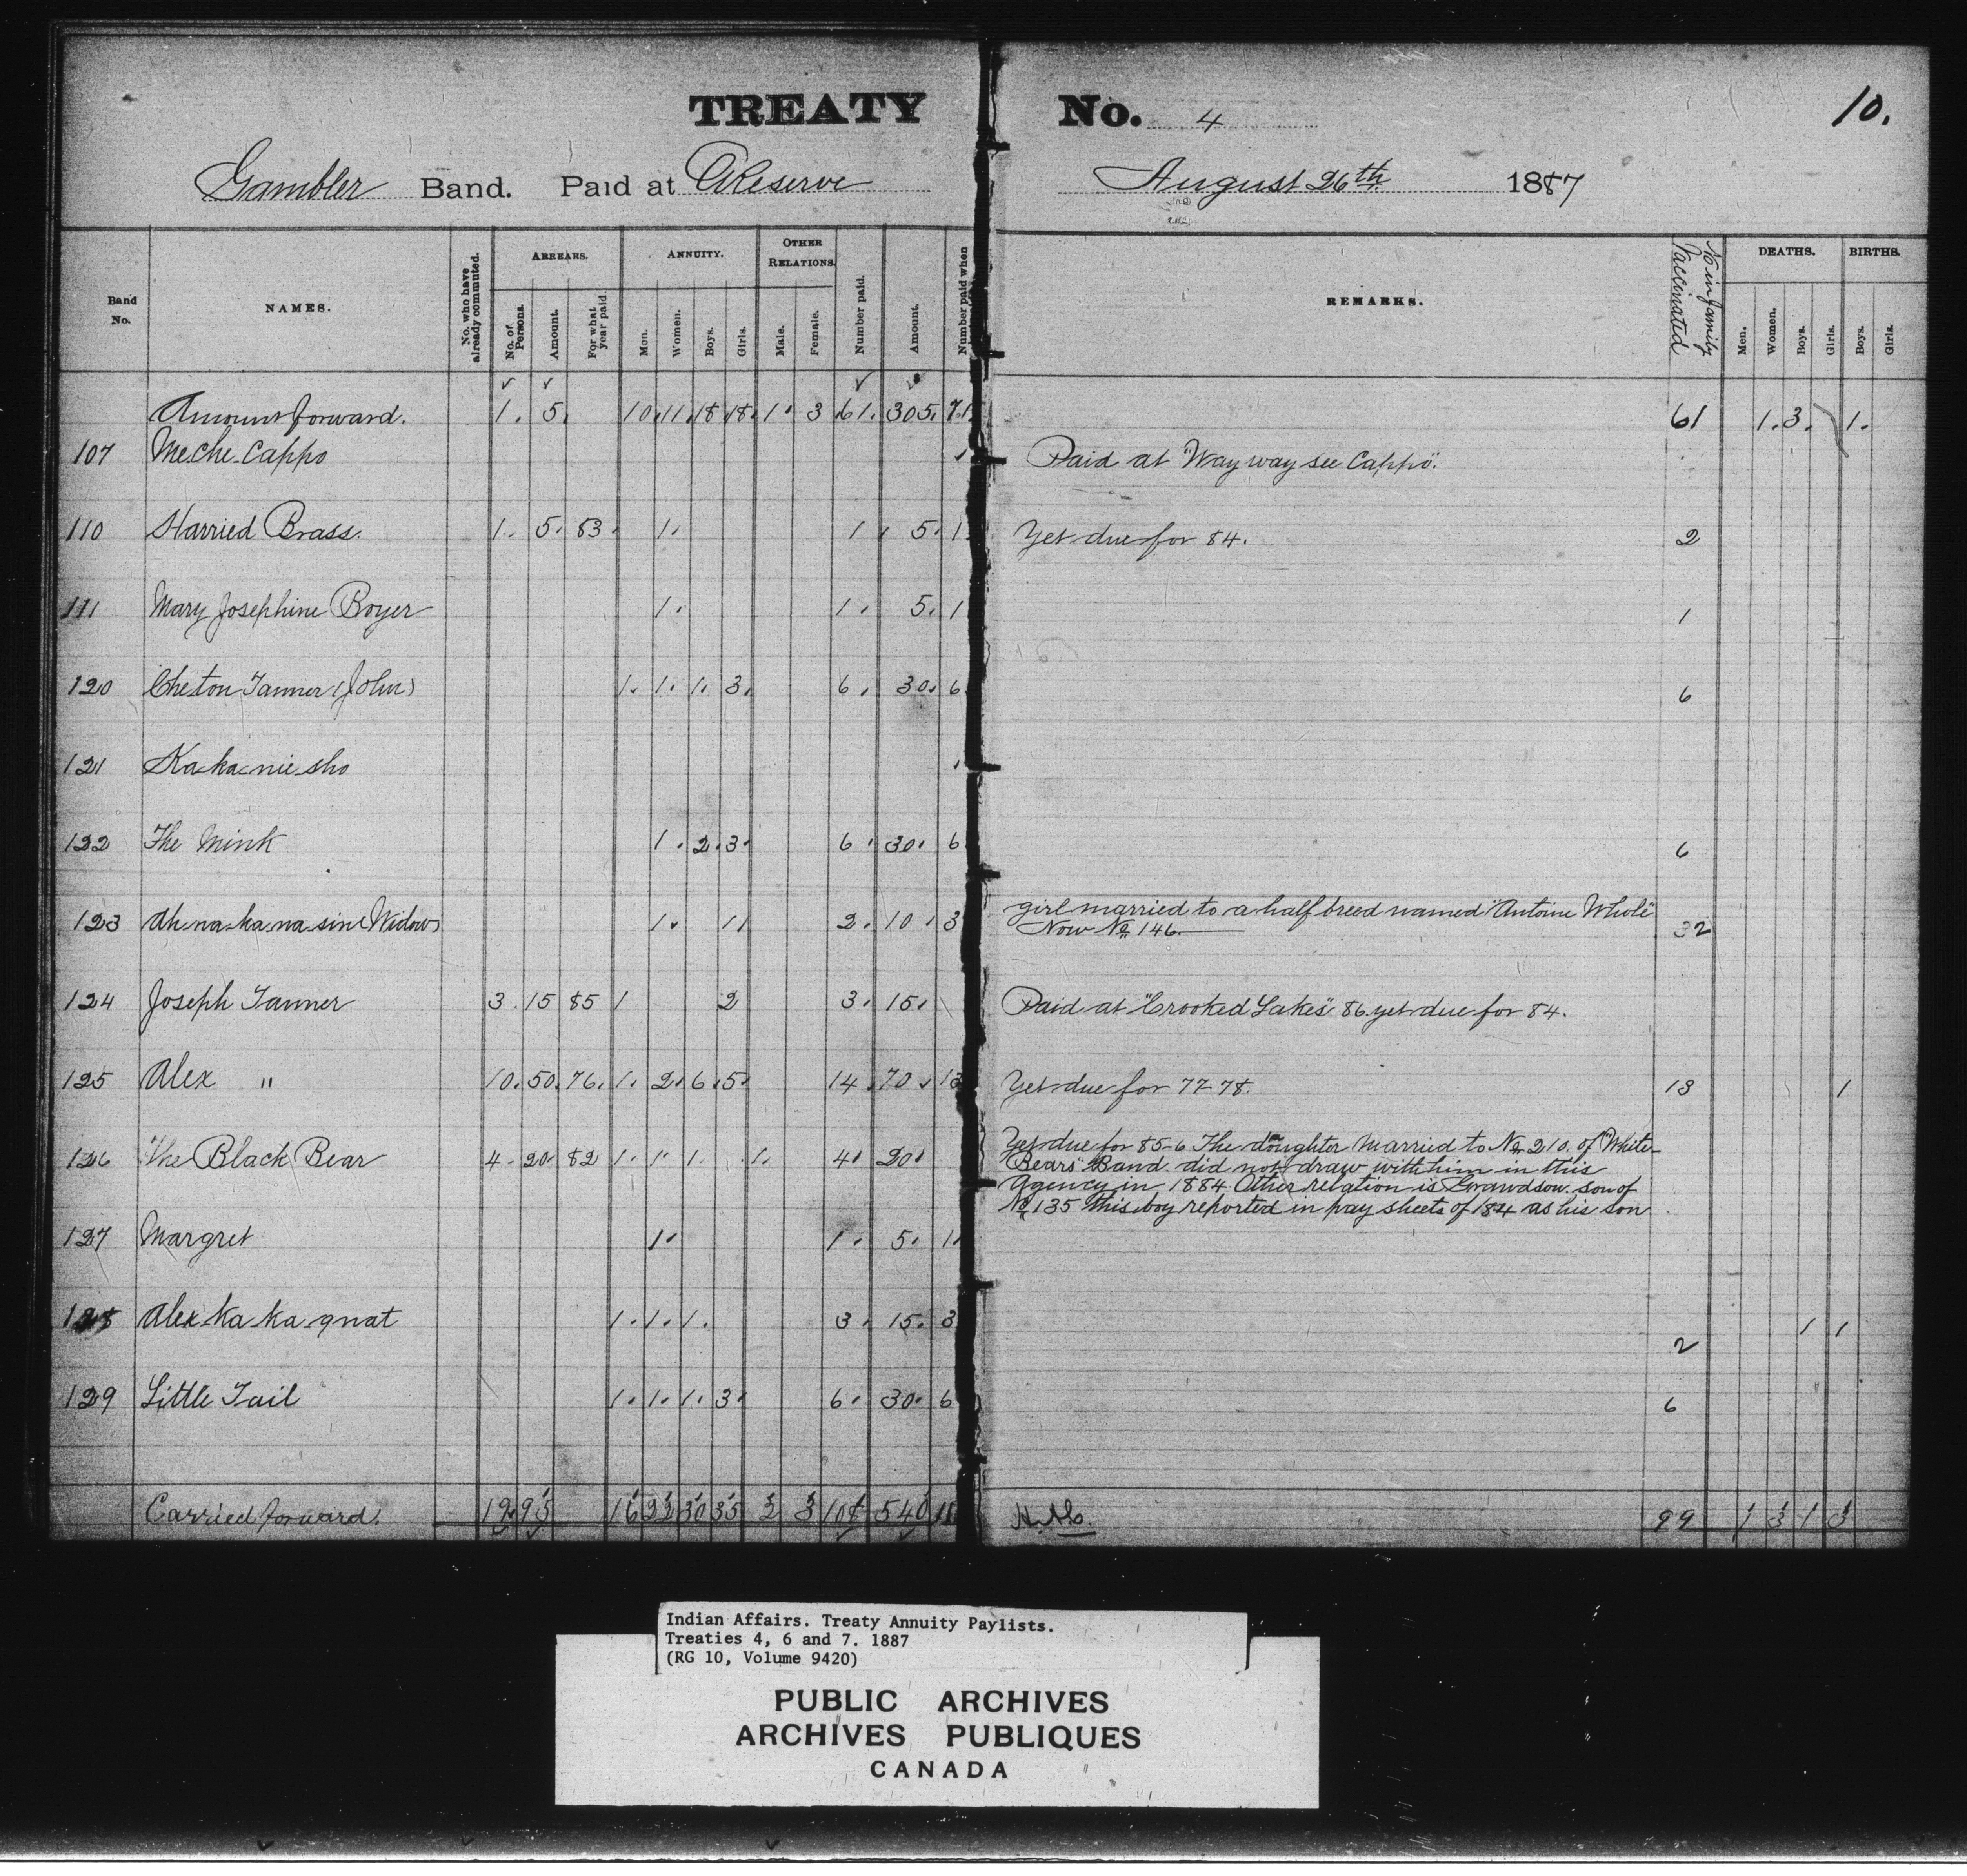 TREATY No. 4
10.
Gambler Band. Paid at Reserve August 26th 1887
Band No. NAMES. No. who have already commuted. ARREARS. No. of Persons. Amount. For what year paid. ANNUITY. Men. Women. Boys. Girls. OTHER RELATIONS. Male. Female. Number paid. Amount. Number paid when REMARKS. No in family Vaccinated DEATHS. Men. Women. Boys. Girls. BIRTHS. Boys. Girls.
Amount forward. 1. 5. 10. 11. 18. 18. 1. 3 61. 305. 71. 61 1. 3. 1.
107 Meche Cappo Paid at "Way way see Cappo".
110 Harried Brass. 1. 5. 83. 1. 1. 5. 1 Yet due for 84. 2
111 Mary Josephine Boyer 1. 1. 5. 1 1
120 Cheton Tanner (John) 1. 1. 1. 3. 6. 30. 6 6
121 Ka ka nie sho
122 The Mink 1. 2. 3. 6. 30. 6 6
123 Ah na ka na sine Widow 1. 1 2. 10. 3 girl married to a half breed named "Antoine Whole"
Now No 146. 32
124 Joseph Tanner 3. 15 85 1 2 3. 15. Paid at "Crooked Lakes" 86. yet due for 84.
125 Alex " 10. 50. 76. 1. 2. 6. 5. 14. 70. 13 Yet due for 77-78. 13 1
126 The Black Bear 4. 20. 82 1. 1. 1. 1. 4. 20. Yet due for 85-6 The daughter married to No 210. of "White
Bears" Band did not draw with him in this
Agency in 1884 Other relation is Grandson. son of
No 135 this boy reported in pay sheets of 184 as his son
127 Margret 1. 1. 5. 1.
128 Alex Ka Ka gnat 1. 1. 1. 3. 15. 3 2 1 1
129 Little Tail 1. 1. 1. 3. 6. 30. 6 6
Carried forward. 19 95 16 22 30 35 2 3 108 540 99 1 3 1 3
Indian Affairs. Treaty Annuity Paylists.
Treaties 4, 6 and 7. 1887
(RG 10, Volume 9420)
PUBLIC ARCHIVES
ARCHIVES PUBLIQUES
CANADA